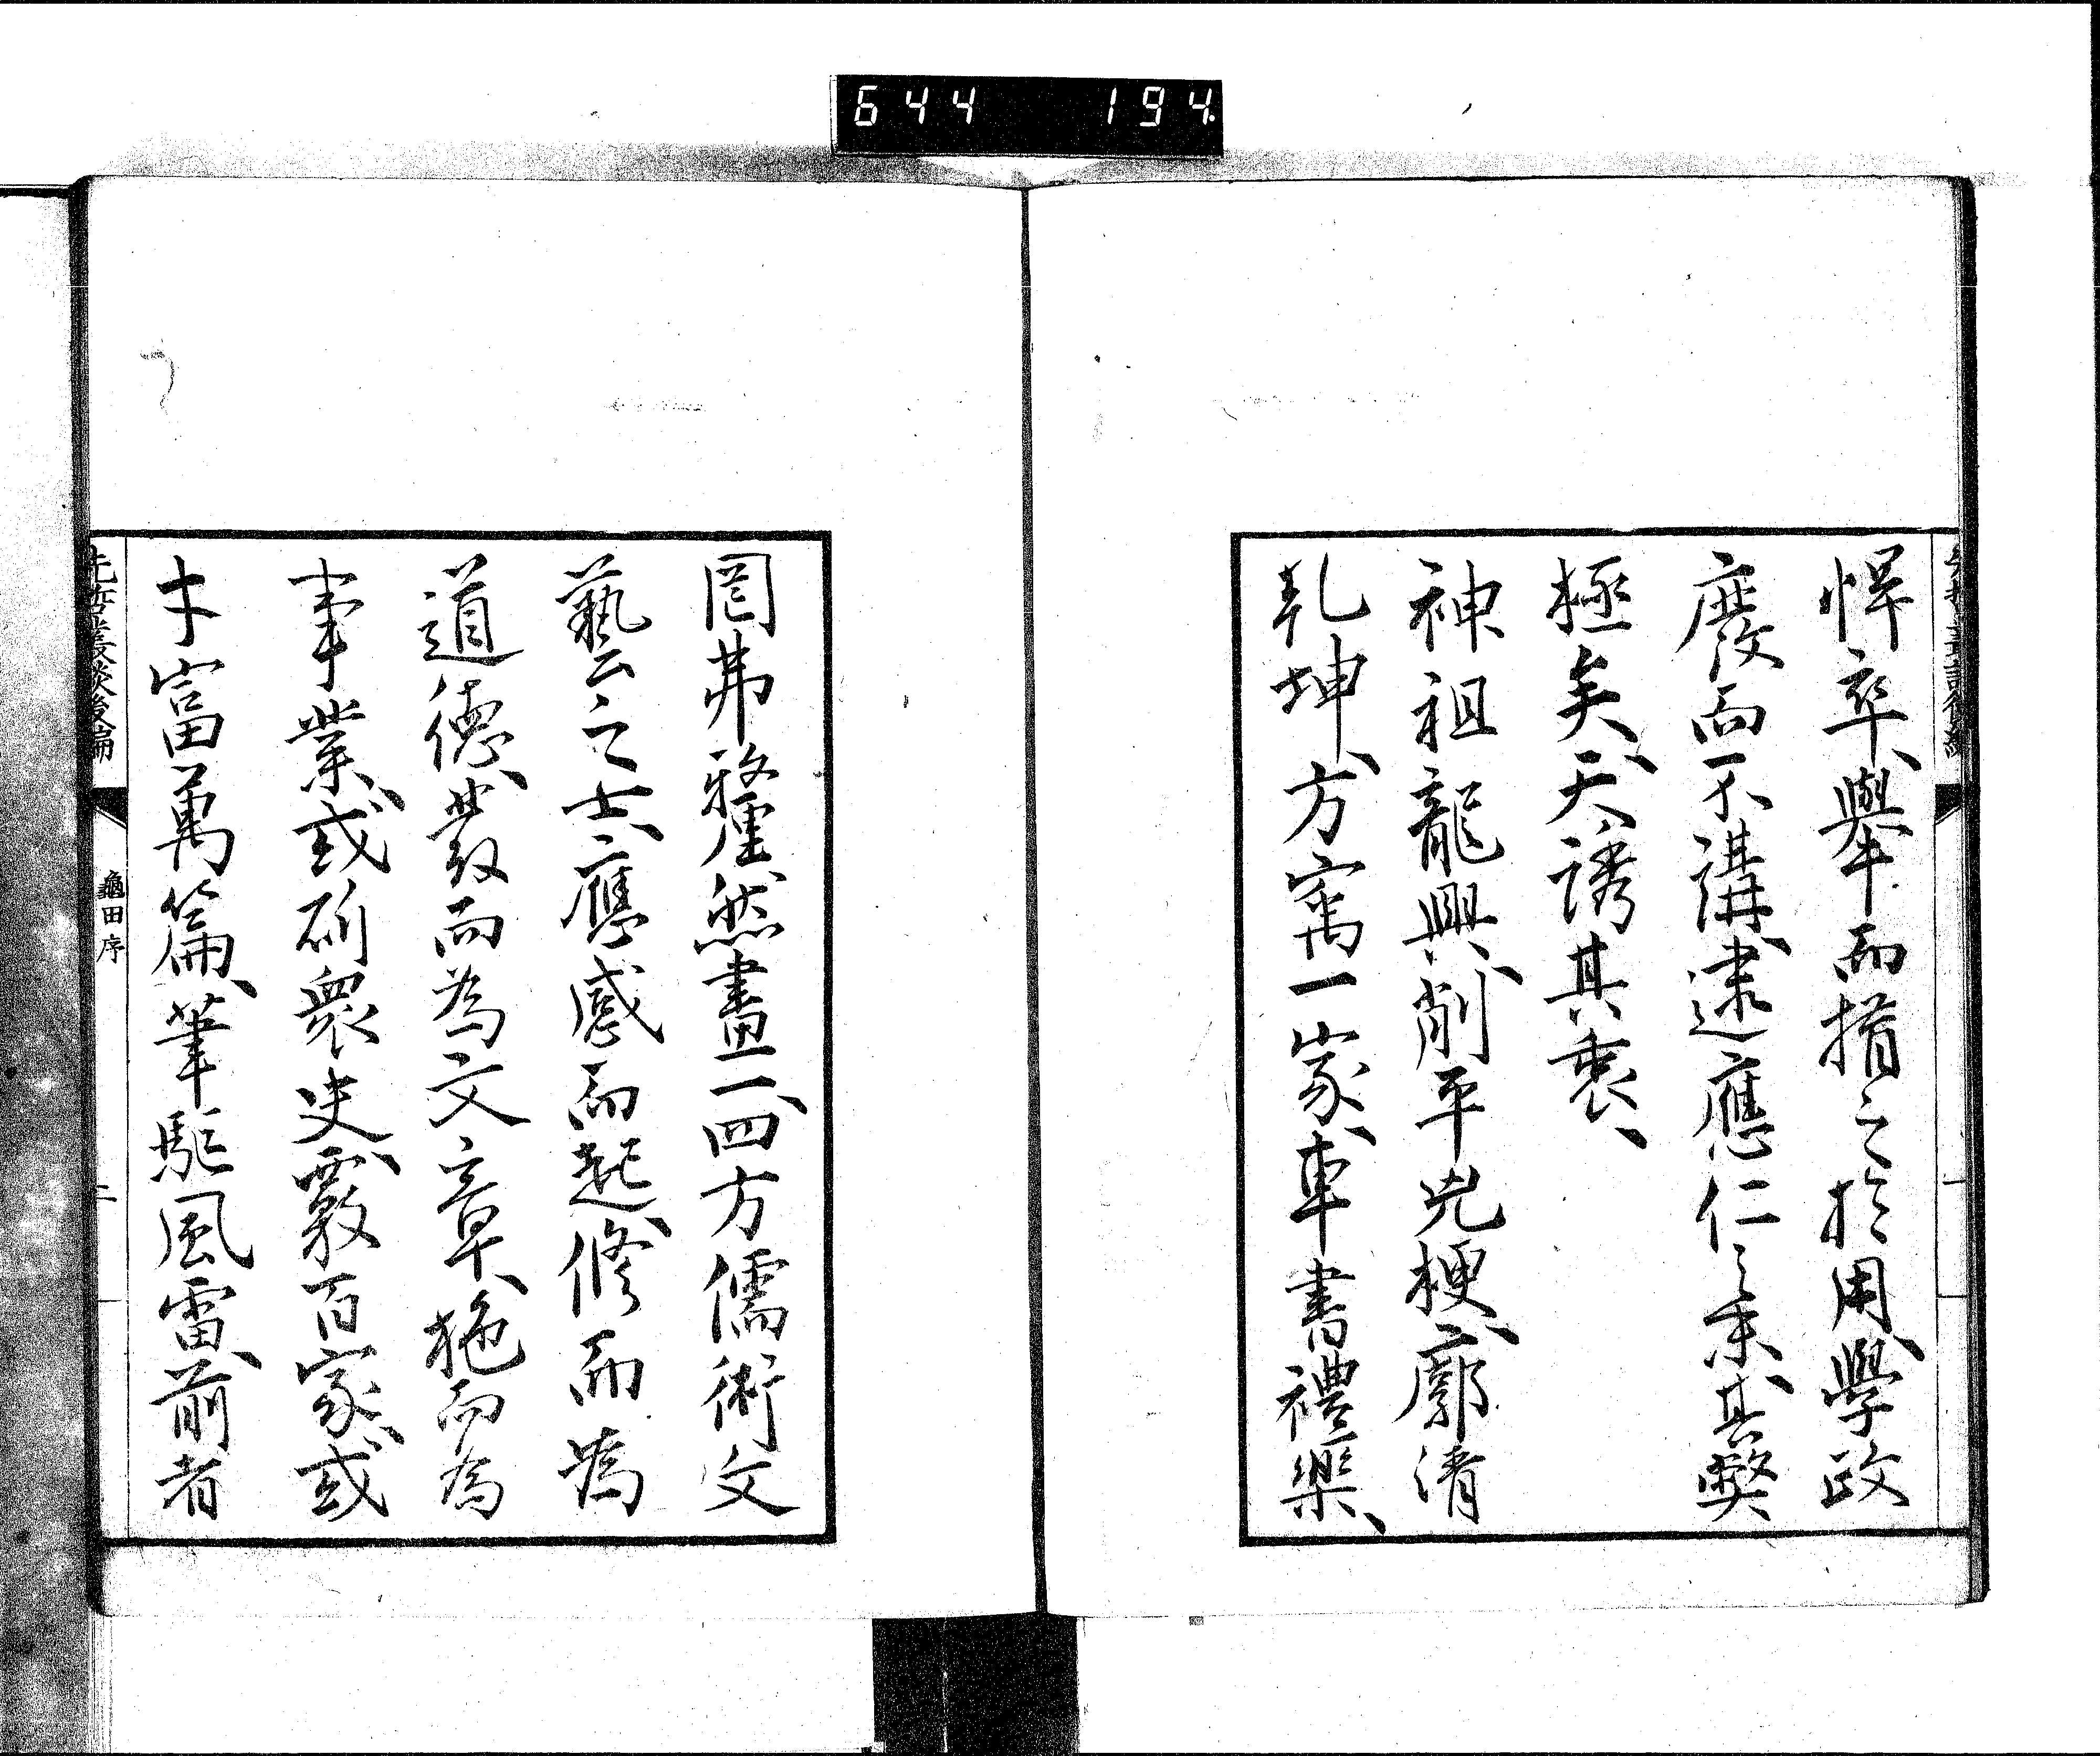 644 194
悍卒、舉而措之於用、學政
廢而不講、逮應仁之末、其弊
極矣、天誘其衷、
神祖龍興、削平兇梗、廓清
乾坤、方寓一家、車書禮樂、
罔弗釐然畫一、四方儒術文
藝之士、應感而起、修而為
道德、發而為文章、施而為
事業、或斫衆史、覈百家、或
才富萬篇、筆駈風雷、前者
先哲叢談後編
龜田序
二